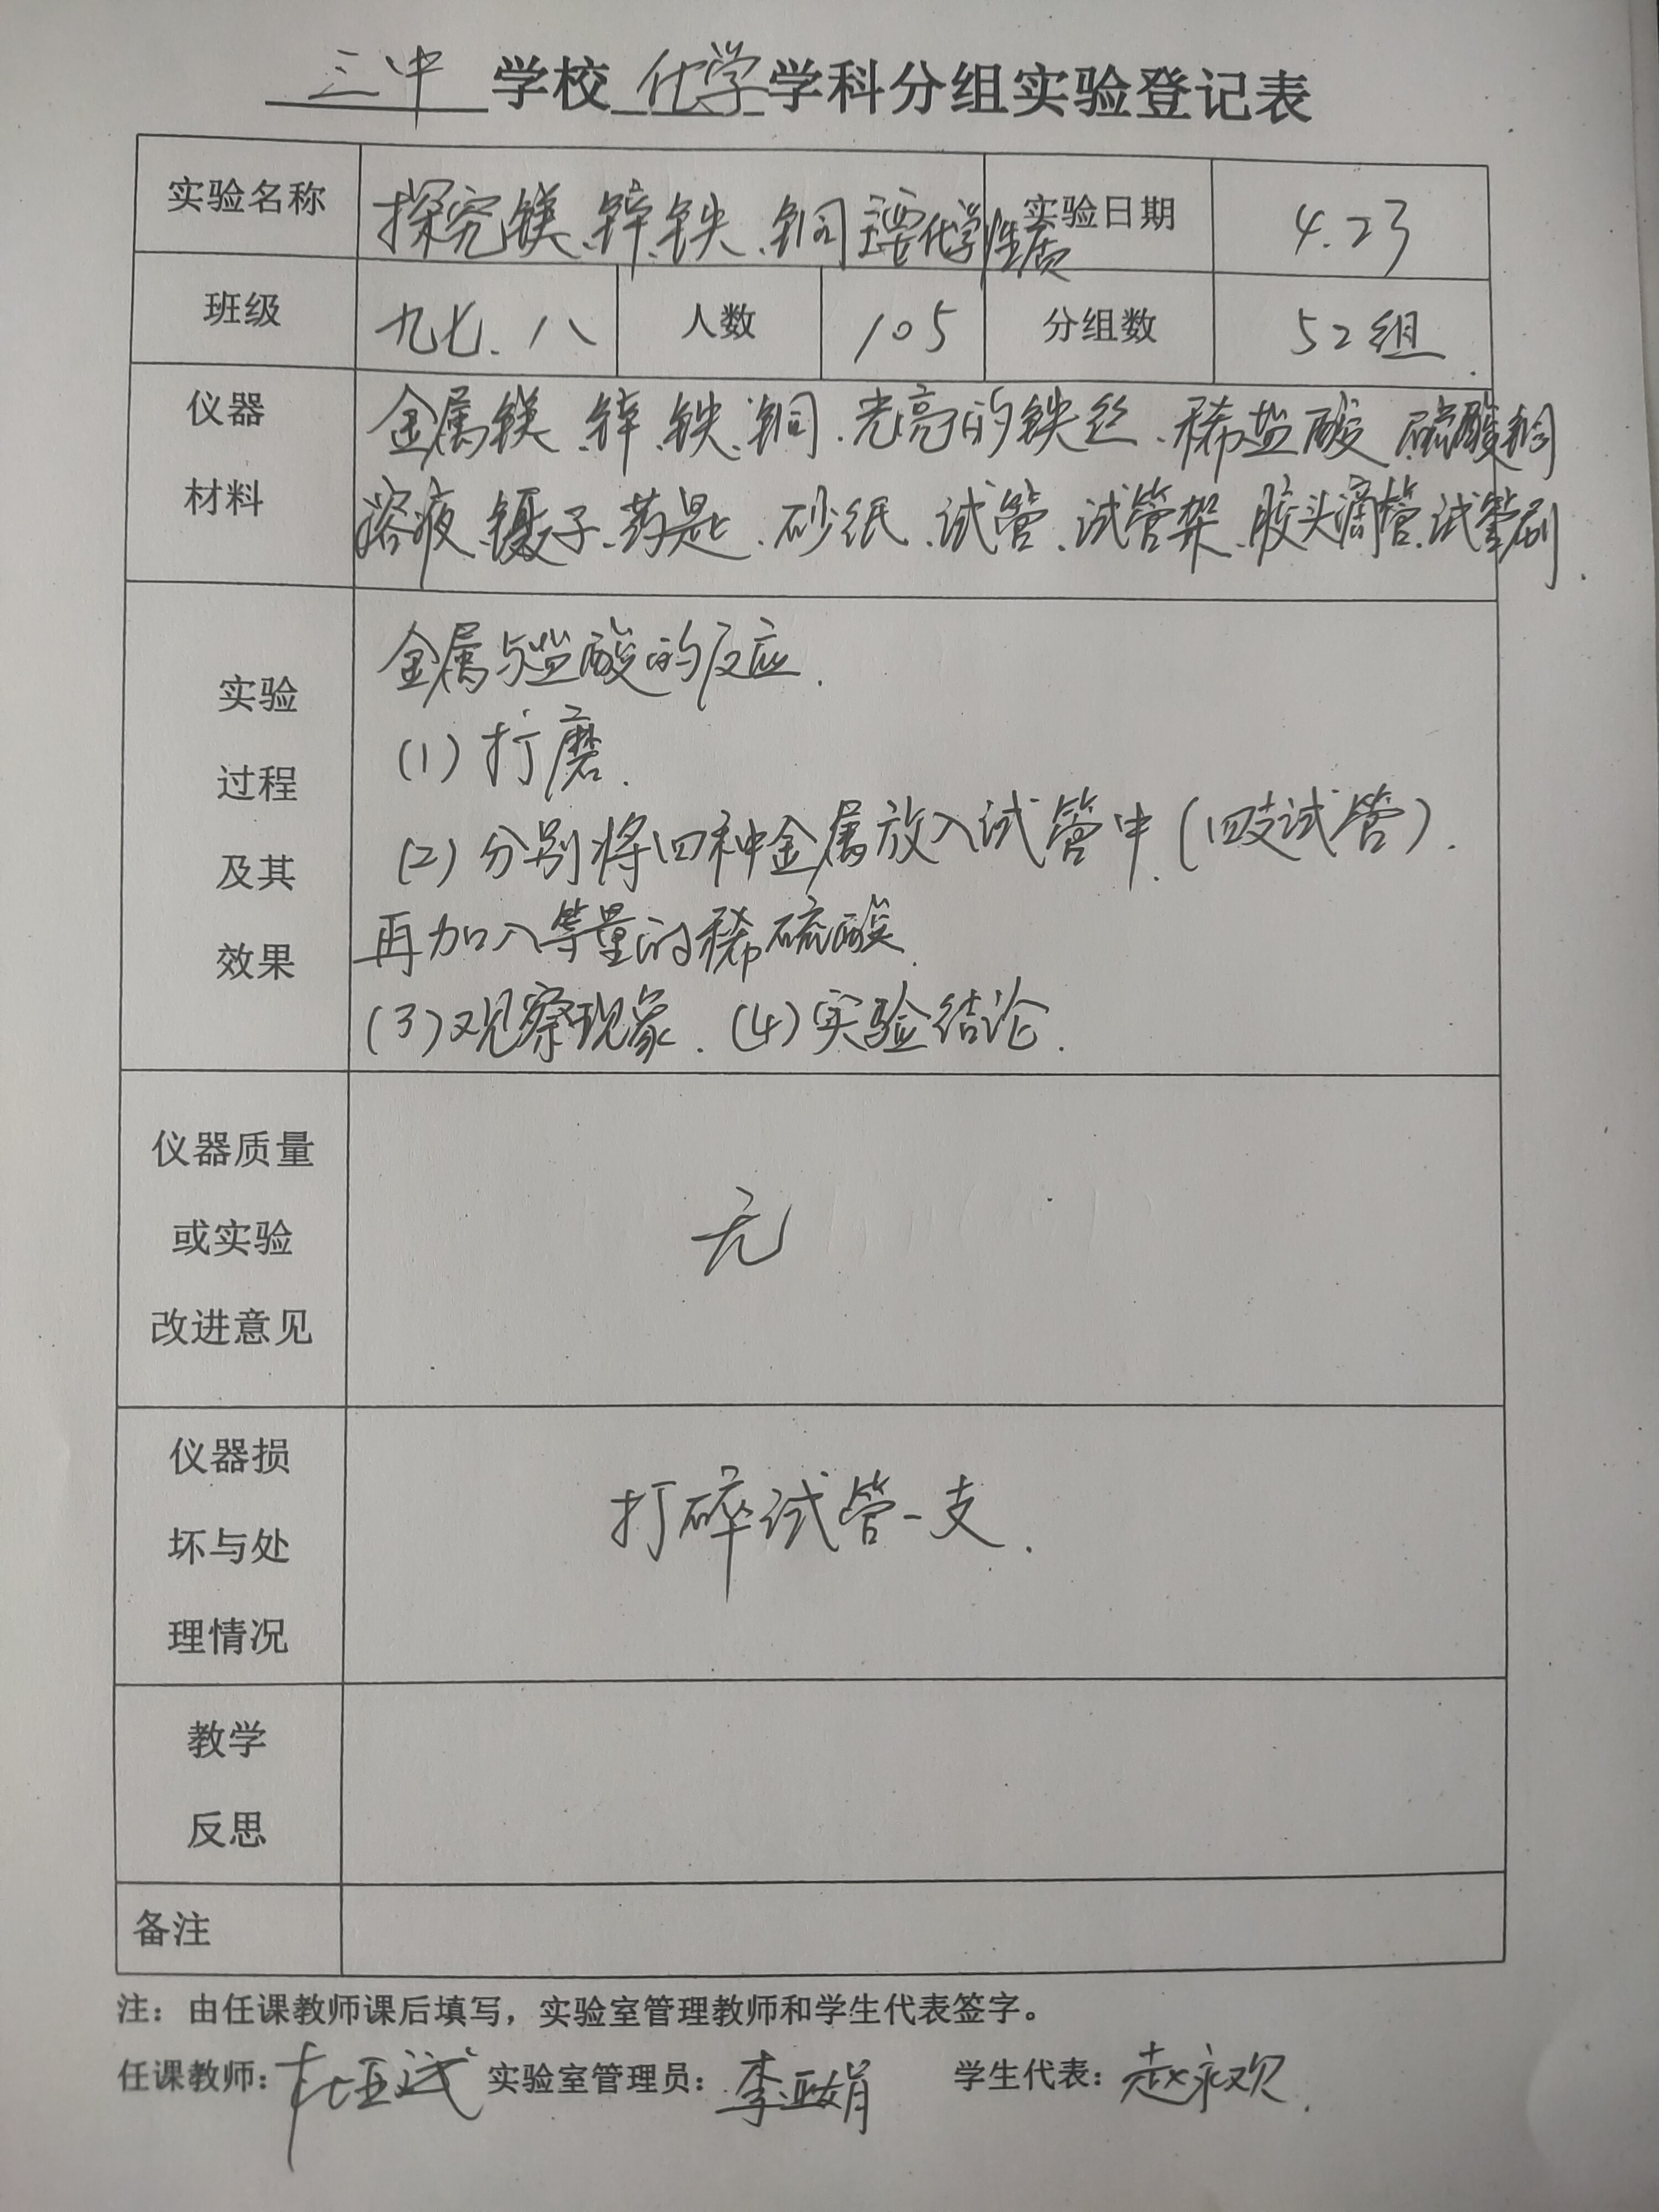 三中 学校 化学 学科分组实验登记表
实验名称 探究镁、锌、铁、铜主要化学性质 实验日期 4.23
班级 九七、八 人数 105 分组数 52组
仪器
材料
金属镁、锌、铁、铜、光亮的铁丝、稀盐酸、硫酸铜
溶液、镊子、药匙、砂纸、试管、试管架、胶头滴管、试管刷.
实验
过程
及其
效果
金属与盐酸的反应.
(1)打磨.
(2)分别将四种金属放入试管中.(四支试管).
再加入等量的稀硫酸.
(3)观察现象.(4)实验结论.
仪器质量
或实验
改进意见
无
仪器损
坏与处
理情况
打碎试管一支.
教学
反思
备注
注：由任课教师课后填写，实验室管理教师和学生代表签字。
任课教师: 实验室管理员: 李亚娟 学生代表: 赵永欢.